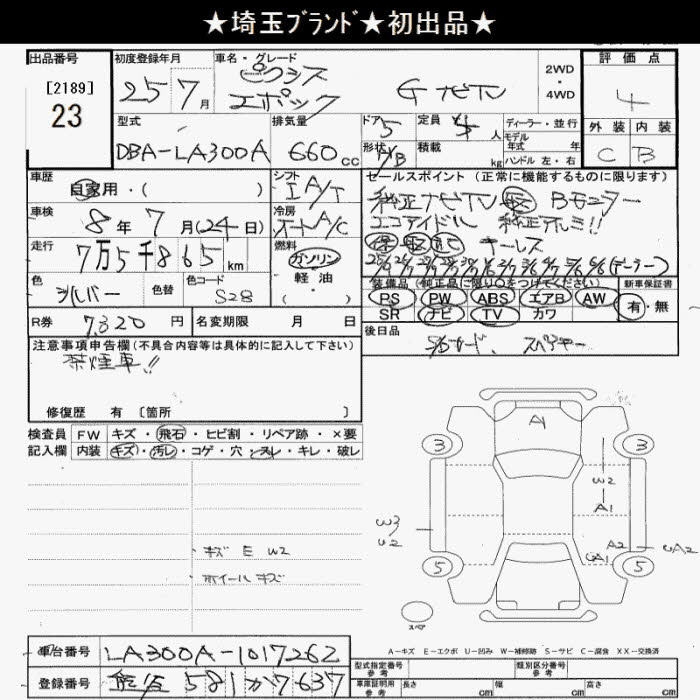 ★埼玉ﾌﾞﾗﾝﾄﾞ★初出品★
出品番号
[2189]
23
初度登録年月
25年7月
車名・グレード
ピクシス
エポック
G ナビTV
2WD
・
4WD
評価点
4
外装 内装
C B
型式
DBA-LA300A
排気量
660cc
ドア
5
定員
4人
形状
H/B
積載
kg
ディーラー・並行
モデル
年式 年
ハンドル 左・右
車歴
自家用・( )
シフト
IA/T
車検
8年7月(24日)
冷房
オートA/C
走行
7万5千865km
燃料
ガソリン
軽油
( )
色
シルバー
色替
色コード
S28
R券
7,320円
名変期限 月 日
セールスポイント (正常に機能するものに限ります)
純正ナビTV 取 Bモニター
エコアイドル 純正アルミ!!
保 取 記 キーレス
(ディーラー)
装備品 (純正品に限り○をつけてください)
PS PW ABS エアB AW
SR ナビ TV カワ
新車保証書
有・無
後日品
SDカード、スペアキー
注意事項申告欄(不具合内容等は具体的に記入して下さい)
禁煙車!!
修復歴 有 [箇所 ]
検査員
記入欄
FW キズ・飛石・ヒビ割・リペア跡・×要
内装 キズ・汚レ・コゲ・穴・スレ・キレ・破レ
・キズ E W2
・ホイールキズ
A1
3
3
W2
A1
W3
U2
A2
UA1
UA2
5
5
スペア
A-キズ E-エクボ U-凹み W-補修跡 S-サビ C-腐食 XX-交換済
車台番号
LA300A-1017262
登録番号
熊谷 581か7637
型式指定番号
参考
類別区分番号
参考
車庫証明用
参考
長さ cm
幅 cm
高さ cm